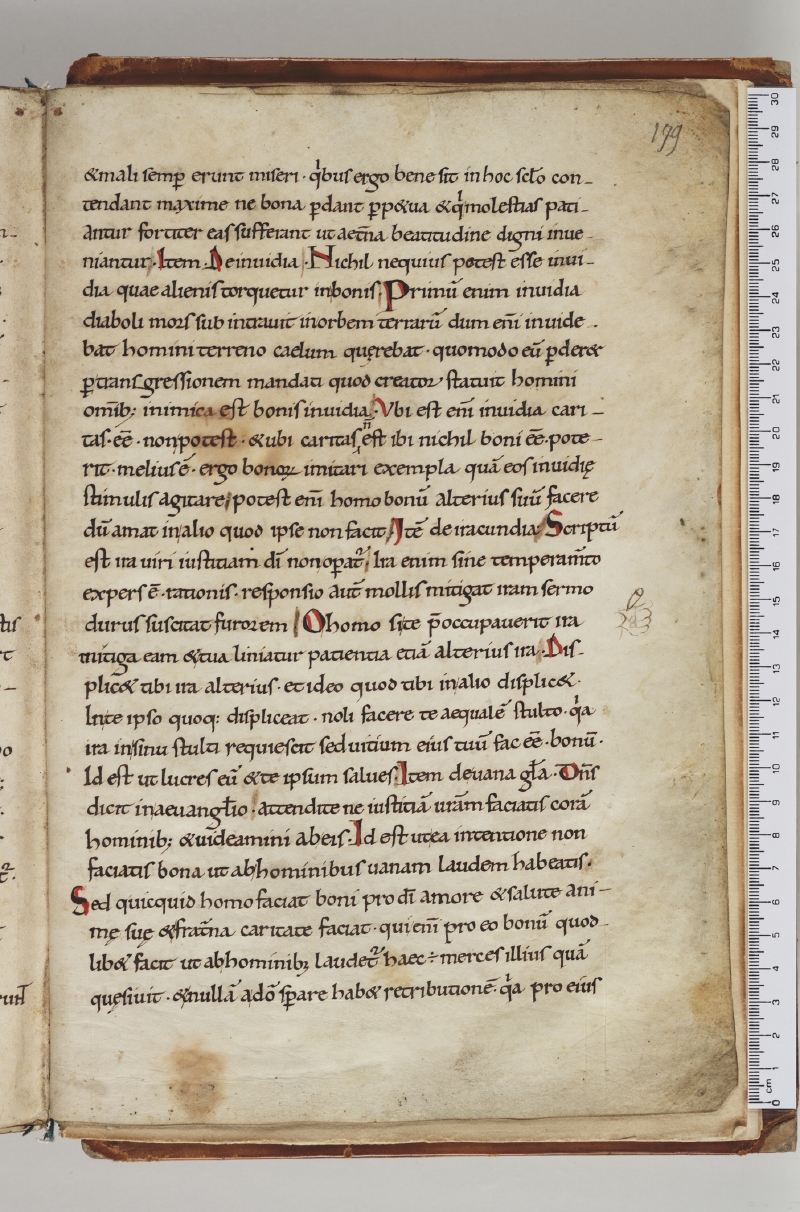 179
&mali semꝑ erunt miseri · qͥbus ergo bene sit in hoc sclo con_
tendant maxime ne bona ꝑdant ꝑp&ua &qͥ molestias pati_
antur fortiter eas sufferant ut aetn̄a beatitudine digni inue_
niantur. Item. De inuidia. Nichil nequius potest esse inui_
dia quae alienis torquetur in bonis. Primū enim inuidia
diaboli mors sub intrauit in orbem terrarū dum eni̅ inuide .
bat homini terreno caelum quęrebat · quomodo eū ꝑder&
ꝑ transgressionem mandati quod creator statuit homini
omīb; inimica est bonis inuidia. Vbi est eni̅ inuidia cari_
tas · eē · non potest · &ubi caritas n̄ est ibi nichil boni eē · pote_
rit · melius ē · ergo bonoꝝ imitari exempla quā eos inuidię
stimulis agitare; potest eni̅ homo bonū alterius suū facere
dū amat in alio quod ipse non facit. Itē de iracundia. Scriptū
est ira uiri iustitiam dī non oꝑat᷑. Ira enim sine temperam̄to
expers ē · rationis · responsio aut̄ mollis mitigat iram sermo
durus suscitat furorem. O homo si te p̄occupauerit ira
mitiga eam &tua liniatur patientia etiā alterius ira. Dis_
plic& tibi ira alterius · et ideo quod tibi in alio displic& ·
In te ipso quoq: displiceat · noli facere te aequalē stulto · qͥa
ira in sinu stulti requiescit sed uitium eius tuū fac eē · bonū ·
Id est ut lucres eū &te ipsum salues. Item de uana gl̄a. Dn̄s
dicit in aeuanglio · attendite ne iustitiā ur̄am faciatis corā
hominib; &uideamini ab eis. Id est ut ea intentione non
faciatis bona ut ab hominibus uanam laudem habeatis.
Sed quicquid homo faciat boni pro dī amore &salute ani_
mę suę &frat̄na caritate faciat · qui eni̅ pro eo bonū quod_
lib& facit ut ab hominibꝫ laudet᷑ haec ÷ merces illius quā
quęsiuit · &nullā a dō sꝑare hab& retributionē · qͥa pro eius